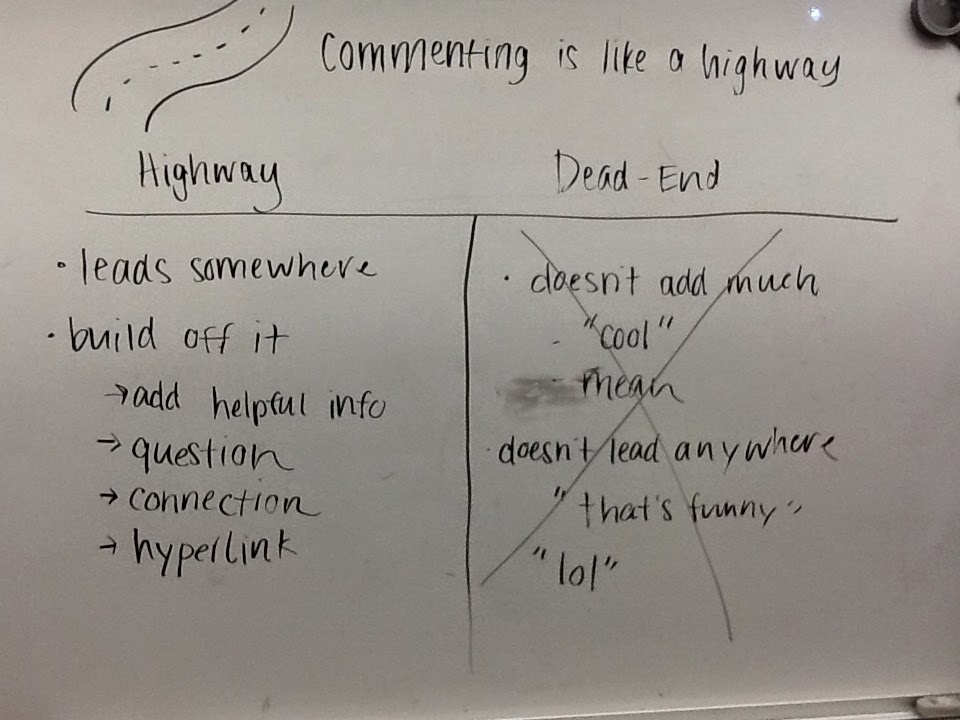 Commenting is like a highway
Highway
Dead-End
• leads somewhere
• build off it
→ add helpful info
→ question
→ connection
→ hyperlink
• doesn't add much
- "cool"
- mean
• doesn't lead anywhere
"that's funny"
"lol"